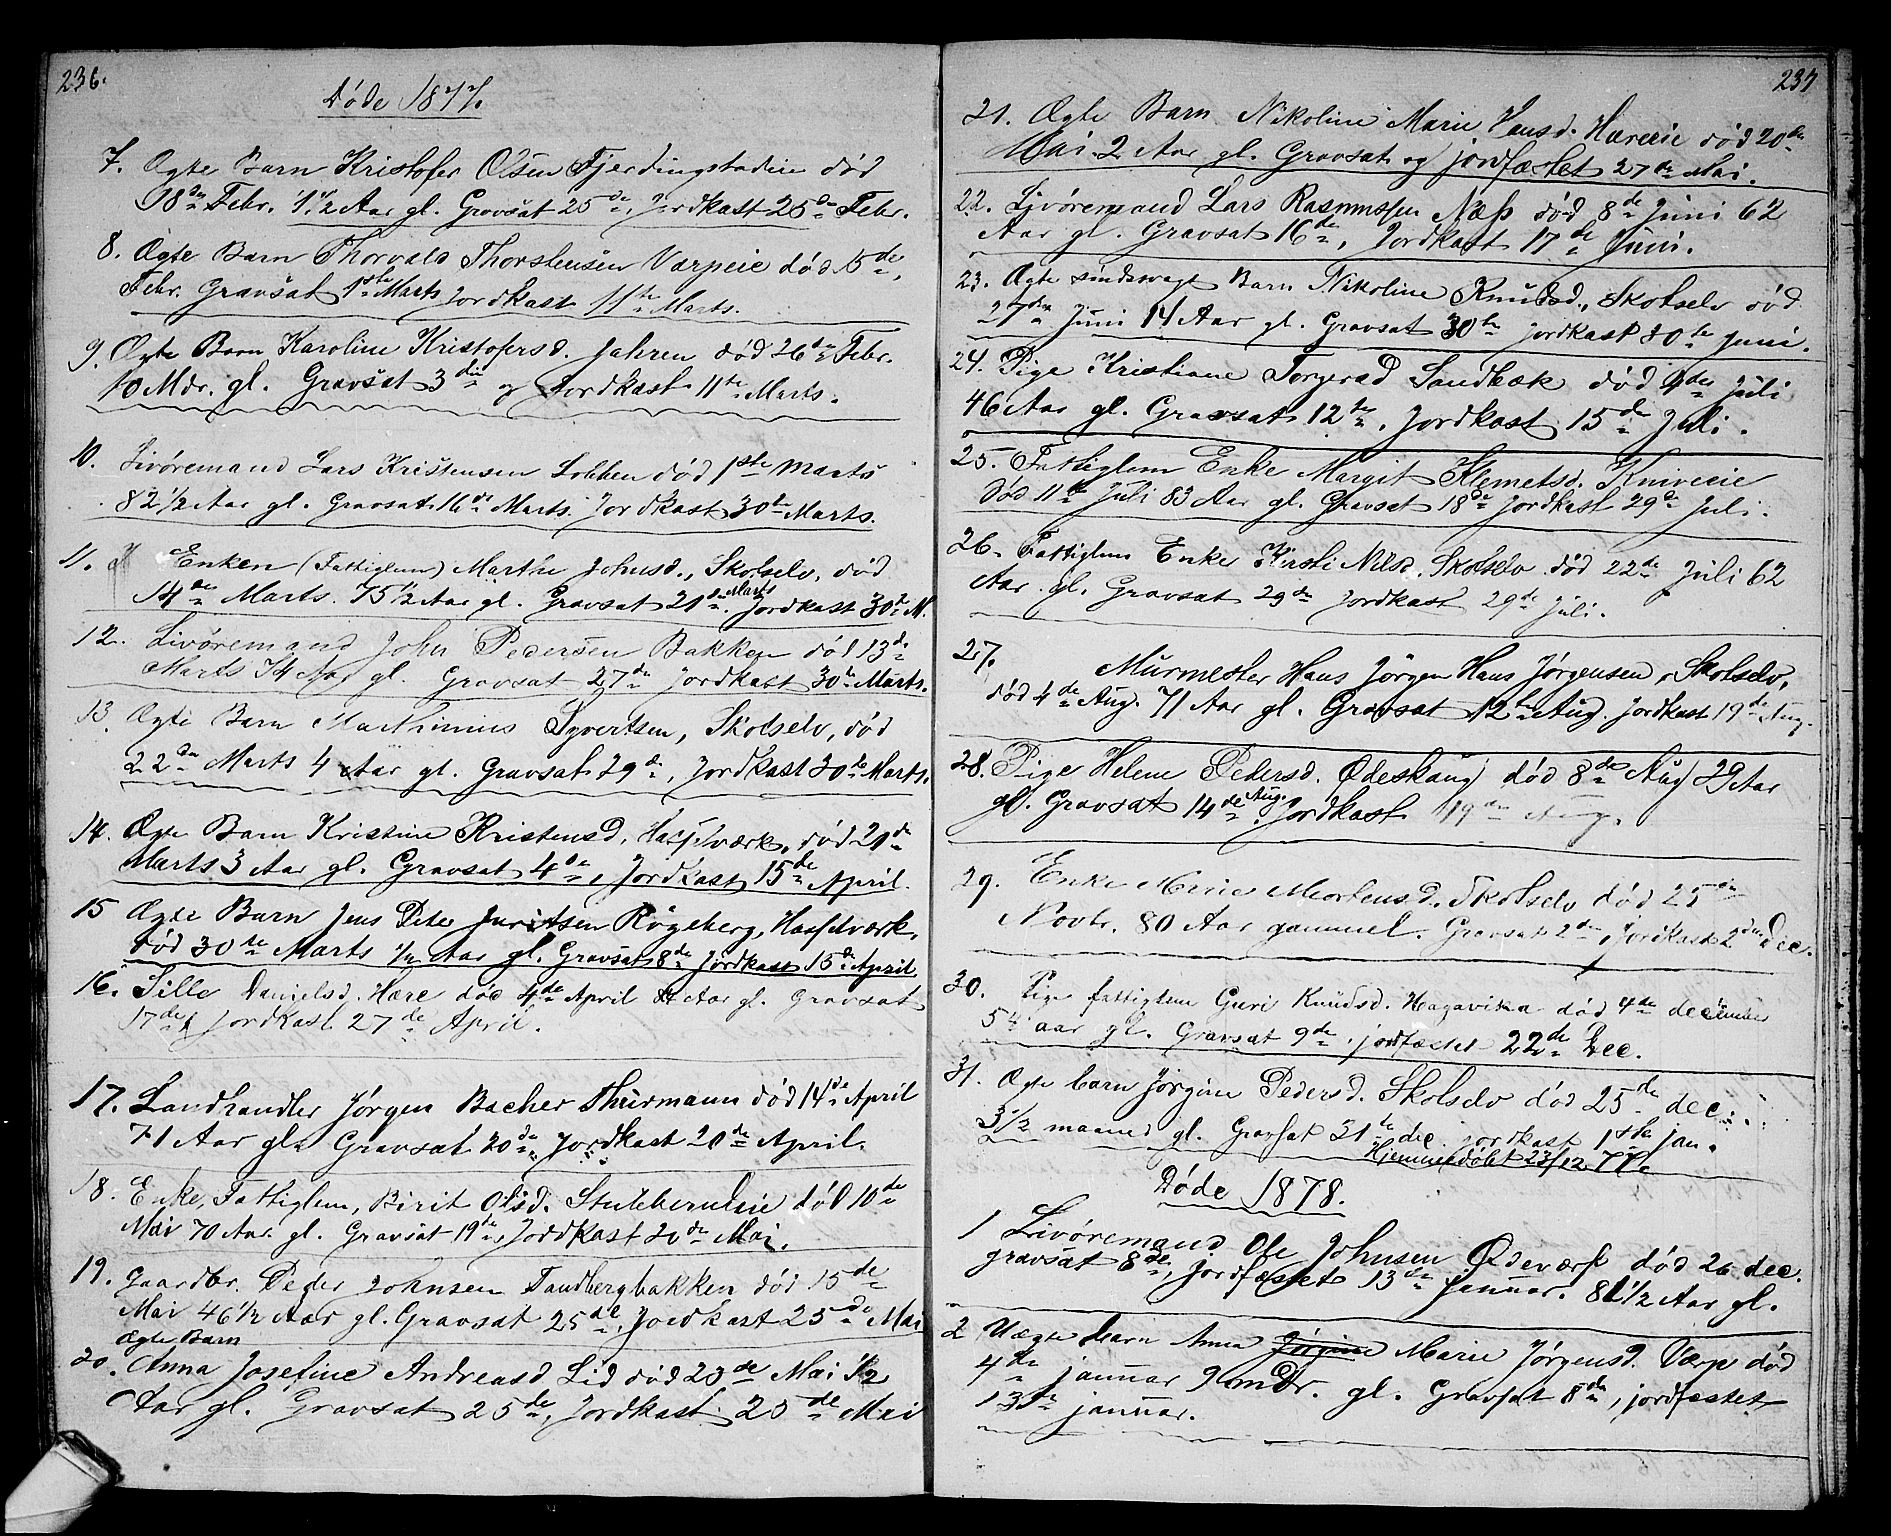 236.
Døde 1877.
7. Ægte Barn Kristofer Olsen Fjerdingstadeie død
18de Febr. 1 1/2 Aar gl. Gravsat 25de, Jordkast 25de Febr.
8. Ægte Barn Thorvald Thorstensen Værpeie død 15de
Febr. Gravsat 1ste Marts Jordkast 11te Marts.
9. Ægte Barn Karoline Kristofersd. Jahren død 26de Febr.
10 Mdr. gl. Gravsat 3die og Jordkast 11te Marts.
10. Livøremand Lars Kristensen Lobben død 1ste Marts
82 1/2 Aar gl. Gravsat 16de Marts. Jordkast 30te Marts.
11. Enken (Fattiglem) Marthe Johnsd., Skotselv, død
14de Marts. 75 1/2 Aar gl. Gravsat 21de Marts Jordkast 30te M.
12. Livøremand John Pedersen Bakken død 13de
Marts 74 Aar gl. Gravsat 27de Jordkast 30te Marts.
13. Ægte Barn Marthinius Syvertsen, Skotselv, død
22de Marts 4 Aar gl. Gravsat 29de, Jordkast 30te Marts.
14. Ægte Barn Kristine Kristensd. Hasselværk, død 29de
Marts 3 Aar gl. Gravsat 4de, Jordkast 15de April.
15 Ægte Barn Jens Peter Juritsen Røgeberg, Hasselværk,
død 30te Marts 1/2 Aar gl. Gravsat 8de Jordkast 15de April.
16. Sille Danielsd. Hære død 4de April 84 Aar gl. Gravsat
17de, Jordkast 27de April.
17. Landhandler Jørgen Bacher Thurmann død 14de April
71 Aar gl. Gravsat 20de, Jordkast 20de April.
18. Enke, Fattiglem, Birit Olsd. Stubberudeie død 10de
Mai 70 Aar gl. Gravsat 19de, Jordkast 20de Mai.
19. Gaardbr. Peder Johnsen Sandbergbakken død 15de
Mai 46 1/2 Aar gl. Gravsat 25de, Jordkast 25de Mai
Ægte Barn
20. Anna Josefine Andreasd Lid død 23de Mai 1/2
Aar gl. Gravsat 25de, Jordkast 25de Mai
237
21. Ægte Barn Nikoline Marie Hansd. Hæreeie død 20de
Mai 2 Aar gl. Gravsat og jordfæstet 27de Mai.
22. Livøremand Lars Rasmussen Næss død 8de Juni 62
Aar gl. Gravsat 16de, Jordkast 17de Juni.
23. Ægte sindsvagt Barn Nikoline Knudsd., Skotselv død
27de Juni 14 Aar gl. Gravsat 30te jordkast 30te Juni.
24. Pige Kristiane Torgersd Sandbæk død 4de Juli
46 Aar gl. Gravsat 12te, Jordkast 15de Juli.
25. Fattiglem Enke Margit Klemetsd. Kniveeie
død 11te Juli 83 Aar gl. Gravsat 18de Jordkast 29de Juli.
26. Fattiglem Enke Kirsti Nilsd. Skotselv død 22de Juli 62
Aar gl. Gravsat 29de Jordkast 29de Juli.
27. Murmester Hans Jörgen Hans Jørgensen, Skotselv,
død 4de Aug. 71 Aar gl. Gravsat 12te Aug. Jordkast 19de Aug.
28. Pige Helene Pedersd. Ødeskaug død 8de Aug 29 Aar
gl. Gravsat 14de Aug. Jordkast 19de Aug.
29. Enke Marie Mortensd. Skotselv død 25de
Novbr. 80 Aar gammel. Gravsat 2de, Jordkast 2den Dec.
30. Pige fattiglem Guri Knudsd. Hagavika død 4de december
54 aar gl. Gravsat 9de, jordfæstet 22de Dec.
31. Ægte barn Jørgine Pedersd. Skotselv død 25de dec.
3 1/2 maaned gl. Gravsat 31te dec. jordkast 1ste jan.
Hjemmedøbt 23/12 77.
Døde 1878.
1 Livøremand Ole Johnsen Ødeværp død 26 dec.
gravsat 8de, jordfæstet 13de januar. 81 1/2 Aar gl.
2 Uægte barn Anna Jørgine Marie Jørgensd. Værp død
4de januar 9 mdr. gl. Gravsat 8de, jordfæstet
13de januar.